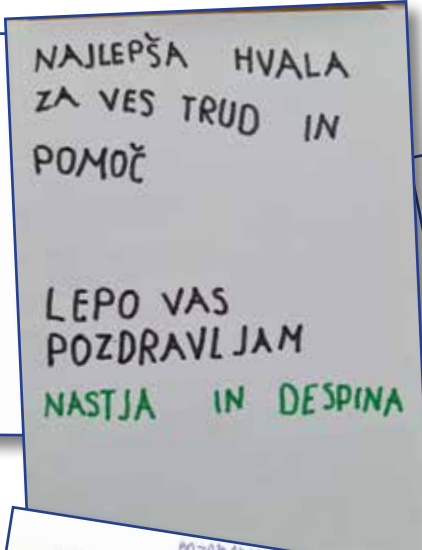 NAJLEPŠA HVALA
ZA VES TRUD IN
POMOČ
LEPO VAS
POZDRAVLJAM
NASTJA IN DESPINA